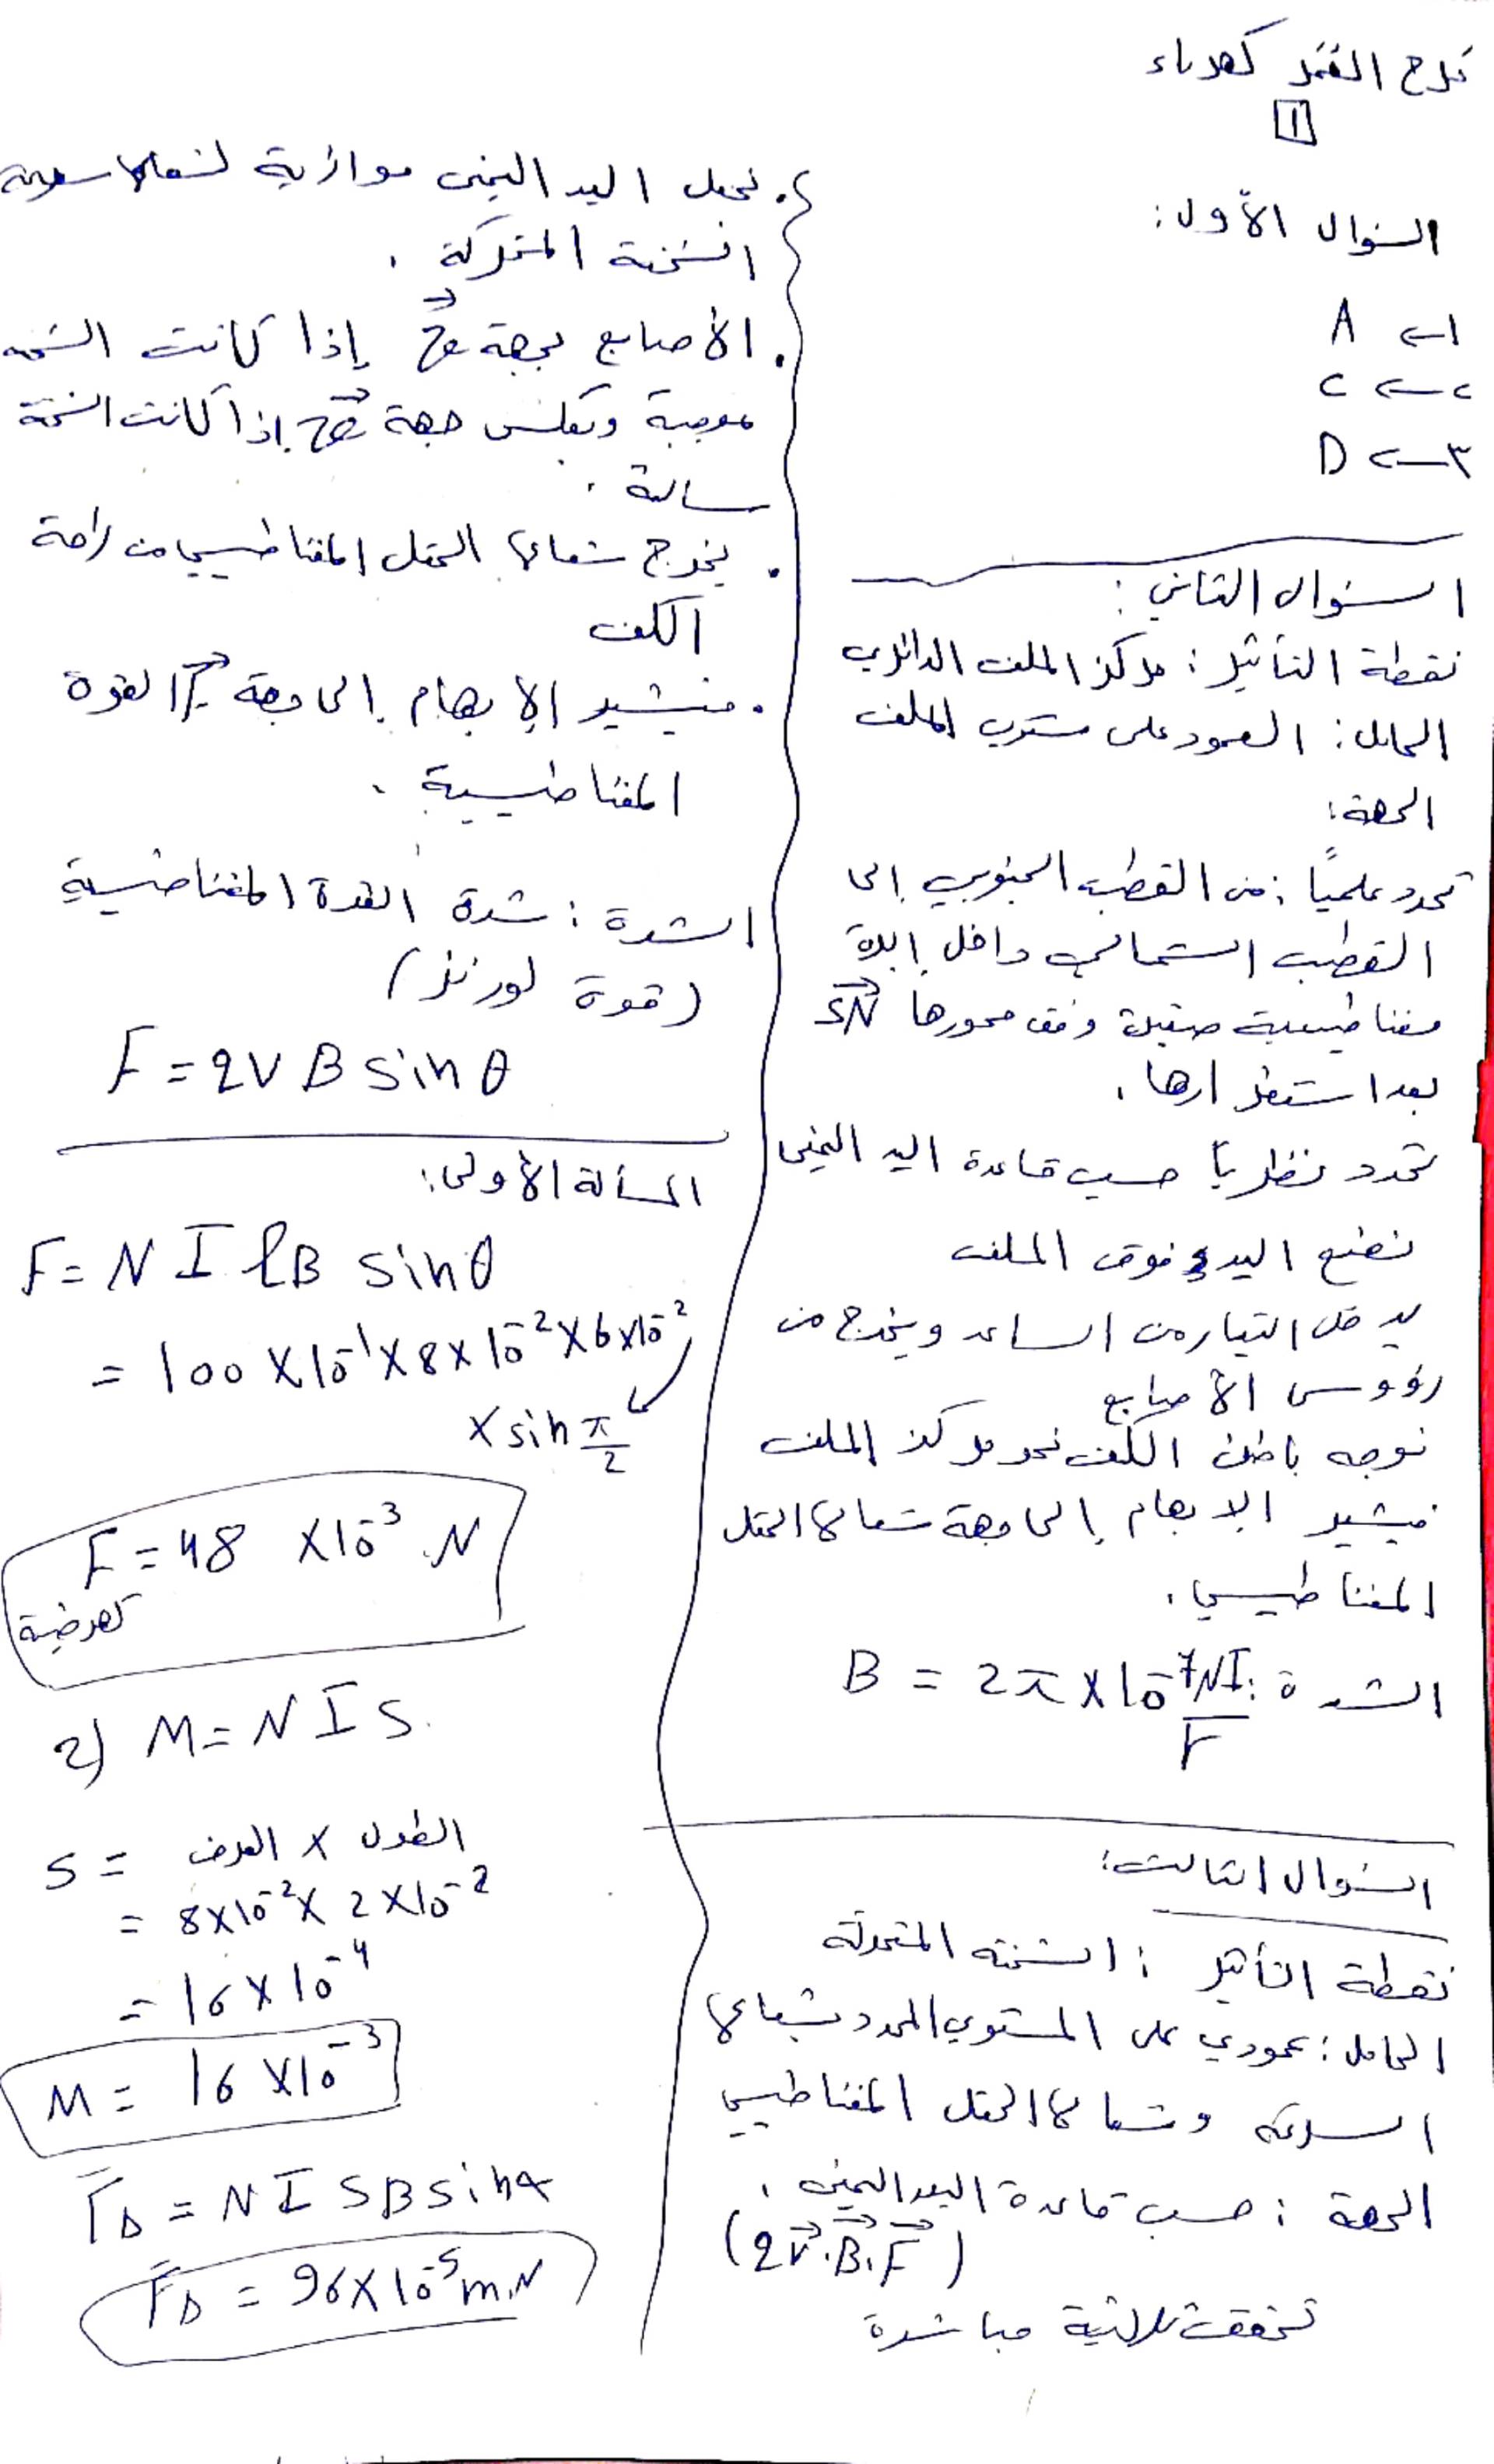 السؤال الأول:
١ ← A
٢ ← C
٣ ← D
السؤال الثاني:
نقطة التأثير: مركز الملف الدائري
الحامل: العمود على مستوي الملف
الجهة:
تحدد عملياً: من القطب الجنوبي إلى
القطب الشمالي داخل إبرة
مغناطيسية صغيرة وفق محورها SN
بعد استقرارها.
تحدد نظرياً حسب قاعدة اليد اليمنى
نضع اليد فوق الملف
يدخل التيار من الساعد ويخرج من
رؤوس الأصابع
نوجه باطن الكف نحو مركز الملف
فيشير الإبهام إلى جهة شعاع الحقل
المغناطيسي.
الشدة: B = 2π × 10⁻⁷ NI/r
السؤال الثالث:
نقطة التأثير: الشحنة المتحركة
الحامل: عمودي على المستوي المحدد بشعاع
السرعة وشعاع الحقل المغناطيسي
الجهة: حسب قاعدة اليد اليمنى.
(qv⃗.B⃗.F⃗)
تحقق ثلاثية مباشرة
. نجعل اليد اليمنى موازية لشعاع سرعة
الشحنة المتحركة.
. الأصابع بجهة v⃗ إذا كانت الشحنة
موجبة وبعكس جهة v⃗ إذا كانت الشحنة
سالبة.
. يخرج شعاع الحقل المغناطيسي من راحة
الكف
. فيشير الإبهام إلى جهة F⃗ القوة
المغناطيسية.
الشدة: شدة القوة المغناطيسية
(قوة لورنز)
F = qvB sin θ
المسألة الأولى:
F = N I ℓB sin θ
= 100 × 10⁻¹ × 8 × 10⁻² × 6 × 10⁻²
× sin π/2
F = 48 × 10⁻³ N
كهرطيسية
2) M = N I S.
S = الطول × العرض
= 8×10⁻² × 2×10⁻²
= 16 × 10⁻⁴
M = 16 × 10⁻³
Γ_Δ = N I S B sin α
Γ_Δ = 96×10⁻⁵ m.N